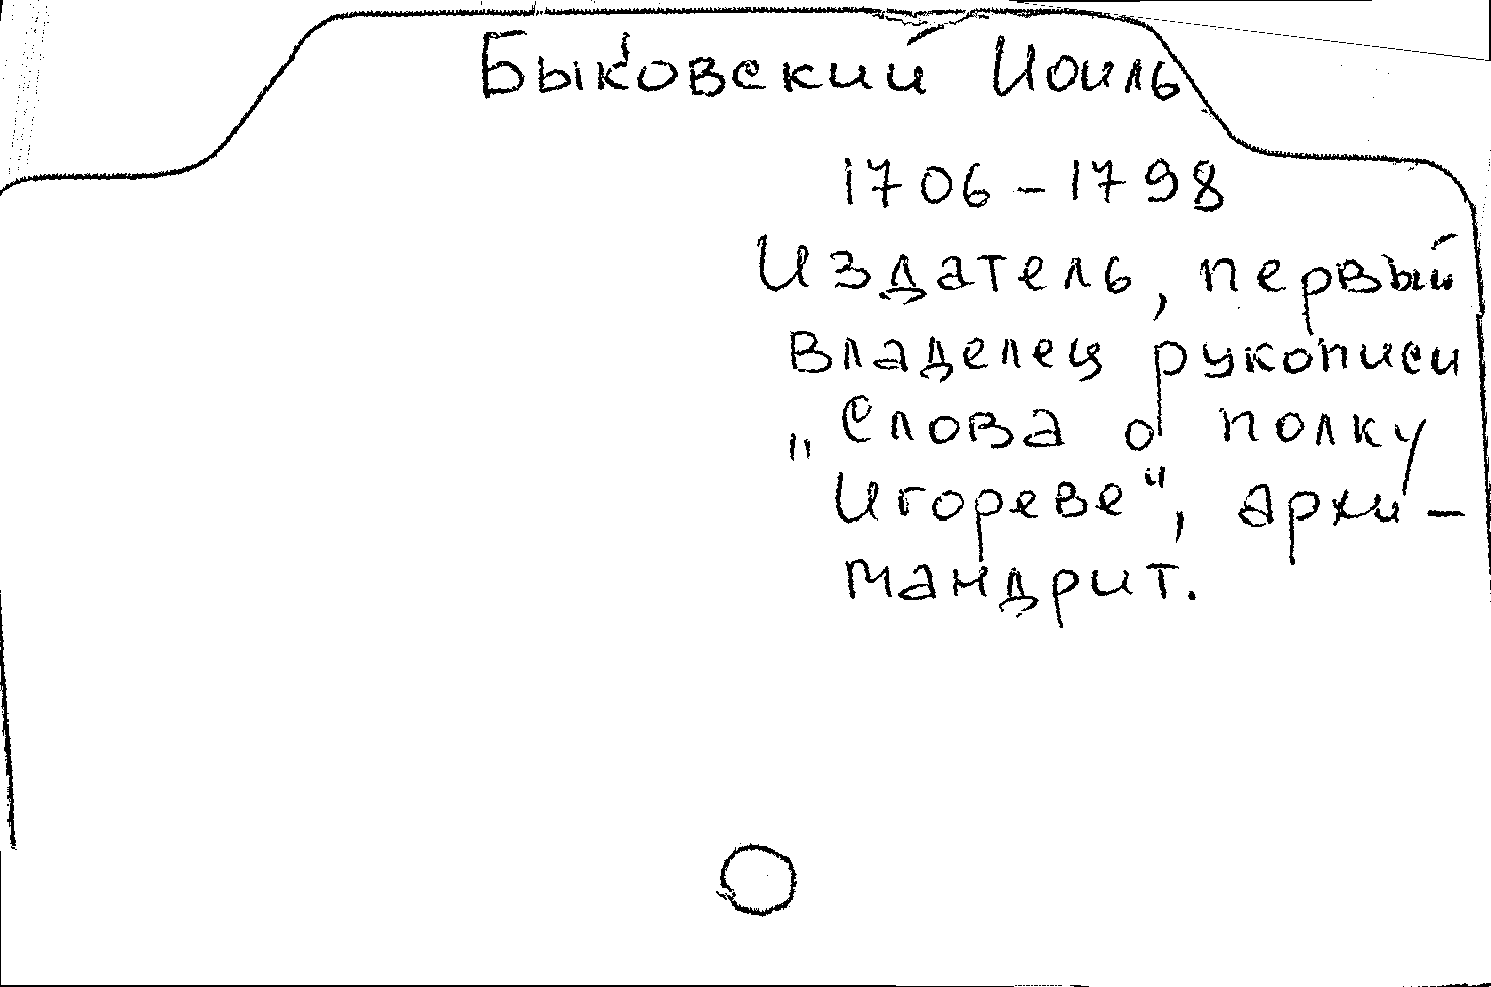 Быковский Иоиль
1706-1798
Издатель, первый
владелец рукописи
„Слова о полку
Игореве“, архи-
мандрит.